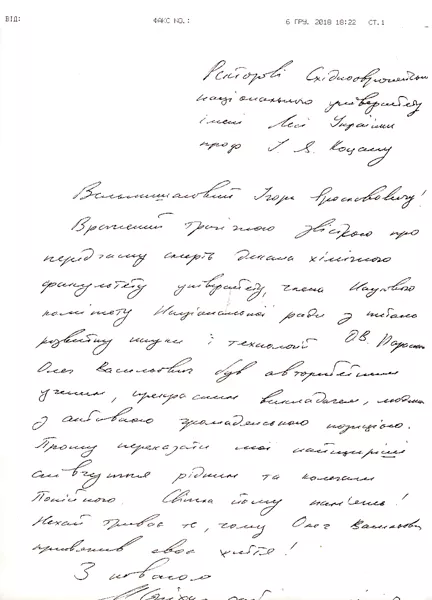 ВІД: ФАКС NO.: 6 ГРУ. 2018 18:22 СТ.1
Ректорові Східноєвропейськ
національного університету
імені Лесі Українки
проф І. Я. Коцану
Вельмишановний Ігоре Ярославовичу!
Вражений трагічною звісткою про
передчасну смерть декана хімічного
факультету університету, члена Наукового
комітету Національної ради з питань
розвитку науки і технологій О.В. Парасюка
Олег Васильович був авторитетним
ученим, прекрасним викладачем, людиною
з активною громадянською позицією.
Прошу переказати мої найщиріші
співчуття рідним та колегам
Покійного. Світла йому пам'ять!
Нехай триває те, чому Олег Васильович
присвятив своє життя!
З повагою